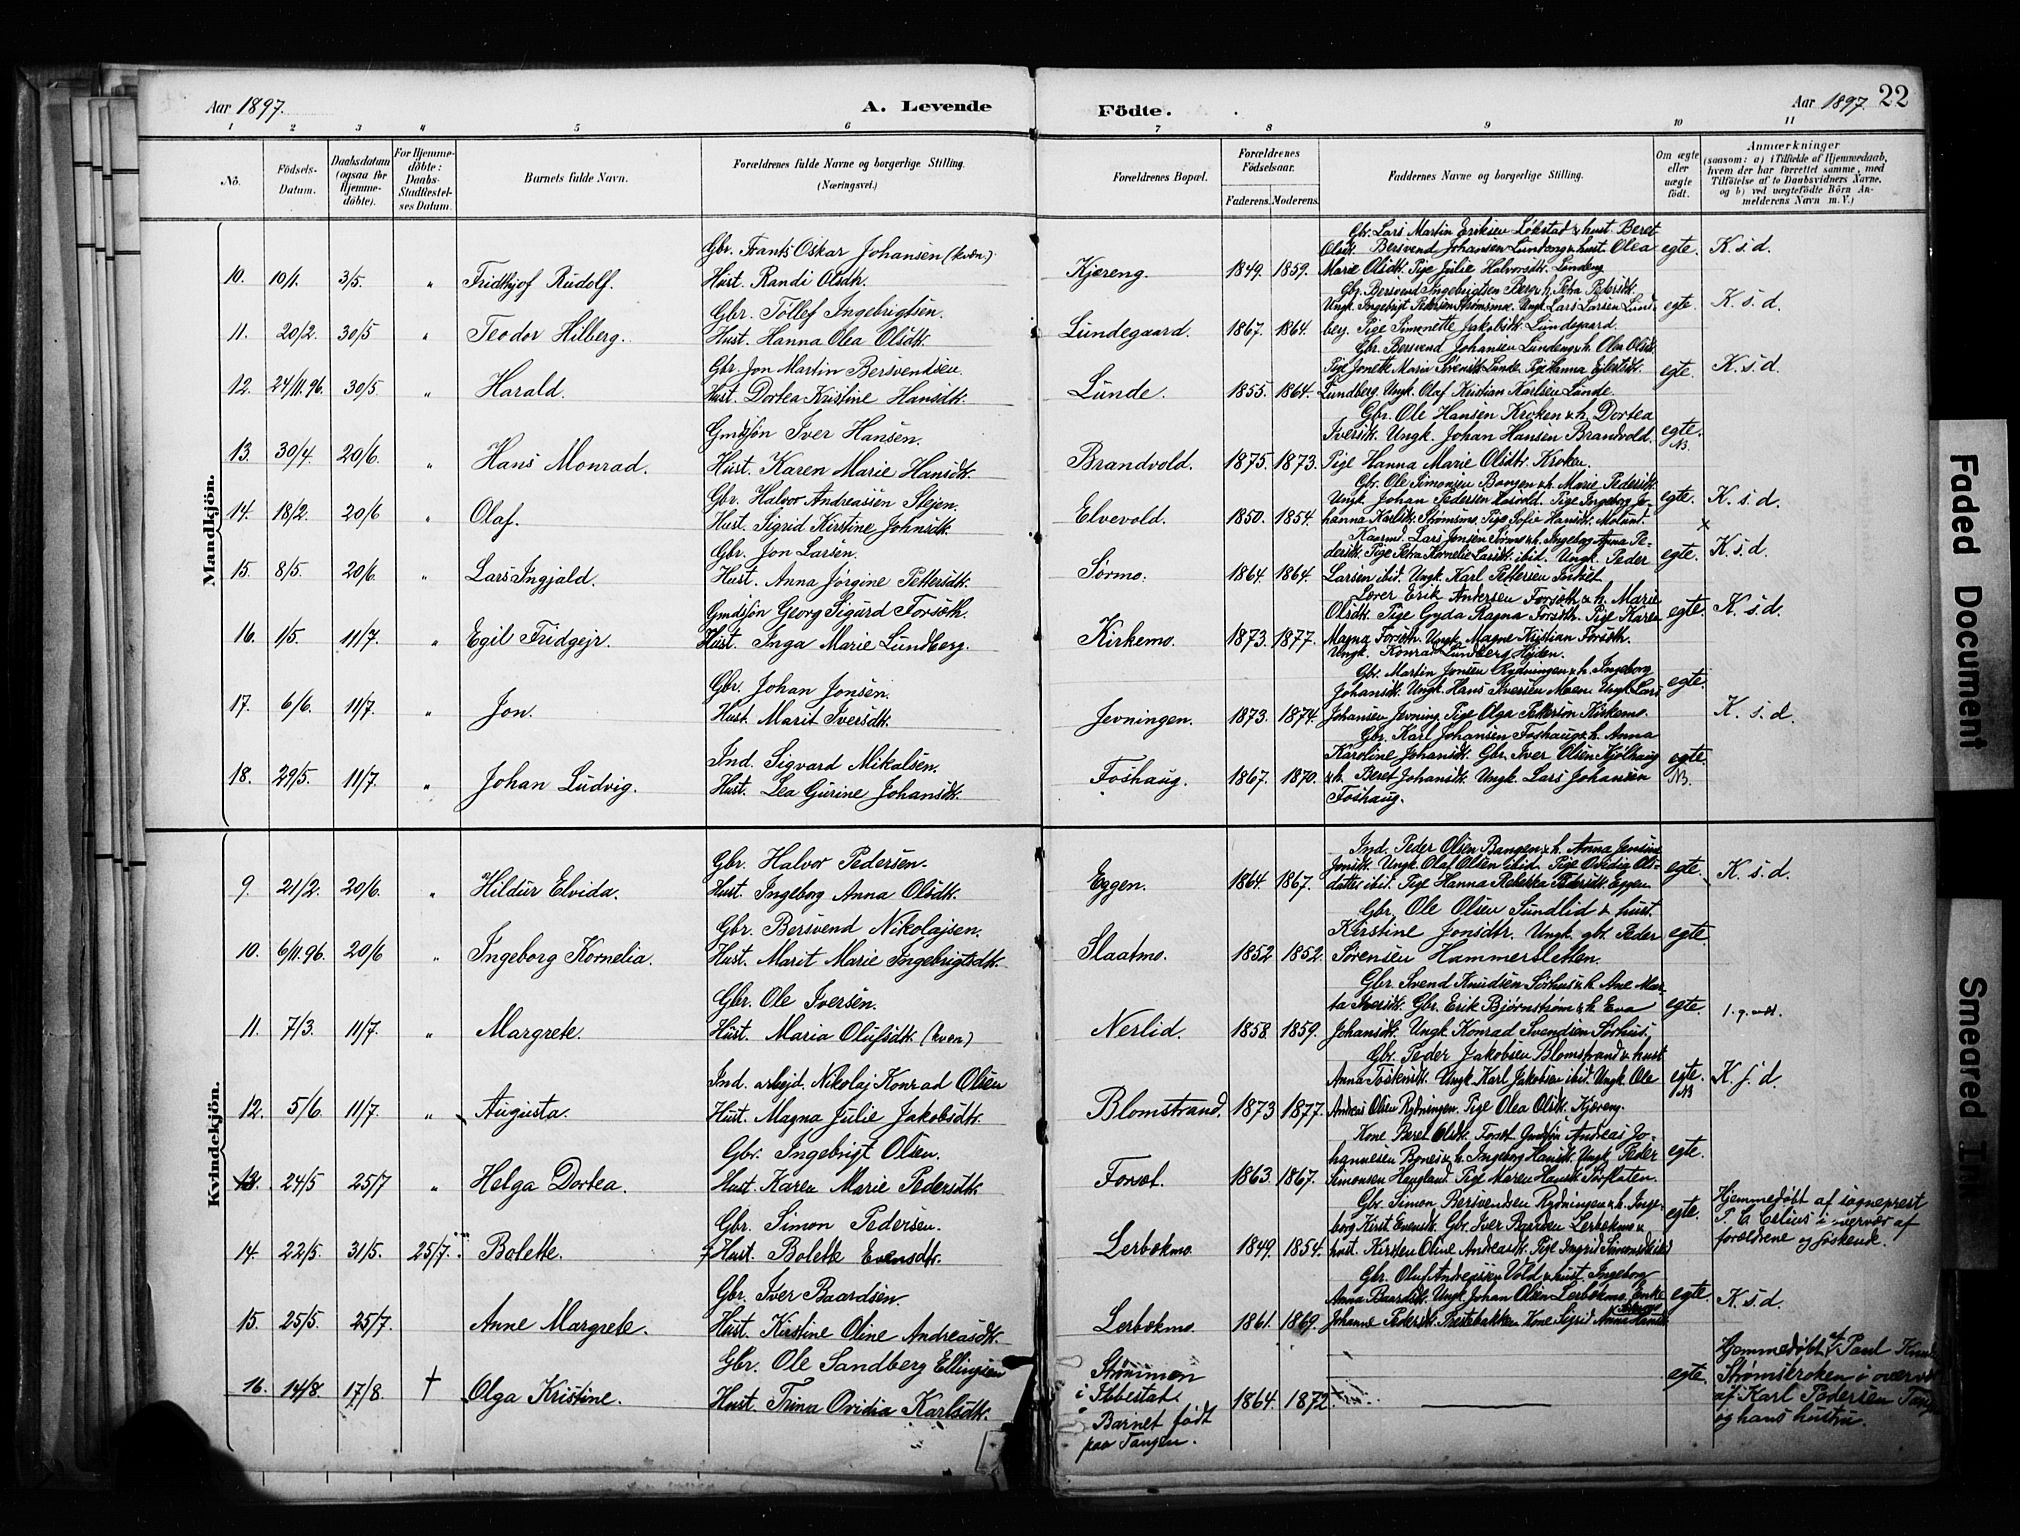 Aar 1897. A. Levende Födte. Aar 1897. 22
1 2 3 4 5 6 7 8 9 10 11
No. Födsels-Datum. Daabsdatum (ogsaa for Hjemmedöbte). For Hjemmedöbte: Daabs-Stadfæstelses Datum. Barnets fulde Navn. Forældrenes fulde Navne og borgerlige Stilling. (Næringsvei.) Forældrenes Bopæl. Forældrenes Födselsaar. Faderens. Moderens. Faddernes Navne og borgerlige Stilling. Om ægte eller uægte födt. Anmærkninger (saasom: a) i Tilfælde af Hjemmedaab, hvem der har forrettet samme, med Tilföielse af to Daabsvidners Navne, og b) ved uægtefödte Börn Anmelderens Navn m. V.)
Mandkjön.
10. 10/1. 3/5. " Fridthjof Rudolf. Gbr. Frants Oskar Johansen (kvæn.) Hust. Randi Olsdtr. Kjæreng. 1849. 1859. Gbr. Lars Martin Eriksen Løkstad & hust. Beret Olsdtr. Bersvend Johansen Lundeng & hust. Olea Marie Olsdtr. Pige Julie Halvorsdtr. Lundeng egte. K. s. d.
11. 20/2. 30/5 " Teodor Hilberg. Gbr. Tollef Ingebrigtsen. Hust. Hanna Olea Olsdtr. Lundegaard. 1867. 1864. Gbr. Bersvend Ingebrigtsen Berg & h. Petra Pedersdtr. Ungk. Ingebrigt Pedersen Strømsmo. Ungk. Lars Larsen Lundberg. Pige Simonette Jakobsdtr. Lundegaard. egte. K. s. d.
12. 24/11.96. 30/5. " Harald. Gbr. Jon Martin Bersvendsen. Hust. Dortea Kristine Hansdtr. Lunde. 1855. 1864. Gbr. Bersvend Johansen Lundeng & h. Olea Olsdtr. Pige Jonette Maria Sørensdtr. Lunde. Pige Hanna Eilertsdtr. Lundberg. Ungk. Olaf Kristian Karlsen Lunde. egte. K. s. d.
13. 30/4. 20/6. " Hans Monrad. Gmdsjön Iver Hansen. Hust. Karen Marie Hansdtr. Brandvold. 1875. 1873. Gbr. Ole Hansen Kroken & h. Dortea Iversdtr. Ungk. Johan Hansen Brandvold. Pige Hanna Marie Olsdtr. Kroken. egte. NB.
14. 18/2. 20/6 " Olaf. Gbr. Halvor Andreassen Stejen. Hust. Sigrid Kirstine Johnsdtr. Elvevold. 1850. 1854. Gbr. Ole Simonsen Bangen & h. Marie Pedersdtr. Ungk. Johan Pedersen Løsvolt. Pige Ingeborg Johanna Karlsdtr. Strømsmo. Pige Sofie Hansdtr. Moland. egte. K. s. d.
15. 8/5. 20/6. " Lars Ingjald. Gbr. Jon Larsen. Hust. Anna Jörgine Pettersdtr. Sørmo. 1864. 1864. Kaarmd. Lars Jonsen Sørmo & h. Ingeborg Anna Pedersdtr. Pige Petra Kornelie Larsdtr. ibid. Ungk. Peder Larsen ibid. Ungk. Karl Pettersen egte. K. s. d.
16. 1/5. 11/7. " Egil Fridgejr. Gmdsjön Georg Sigurd Forseth. Hust. Inga Marie Lundberg. Kirkemo. 1873. 1877. Lærer Erik Andersen Forseth & h. Marie Olsdtr. Pige Gyda Ragna Forseth. Pige Karen Magna Forseth. Ungk. Magne Kristian Forseth. Ungk. Konrad Lundberg Højden. egte. K. s. d.
17. 6/6. 11/7. " Jon. Gbr. Johan Jonsen. Hust. Marit Iversdtr. Jevningen. 1873. 1874. Gbr. Martin Jonsen Rydningen & h. Ingeborg Johansdtr. Ungk. Hans Iversen Moen. Ungk. Lars Johansen Jevning. Pige Olga Petterson Kirkemo. egte. K. s. d.
18. 29/5. 11/7. " Johan Ludvig. Ind. Sigvard Mikalsen. Hust. Lea Gurine Johansdtr. Foshaug. 1867. 1870. Gbr. Karl Johansen Foshaug & h. Anna Karoline Johansdtr. Gbr. Iver Olsen Kjølhaug & h. Beret Johansdtr. Ungk. Lars Johansen Foshaug. egte NB.
Kvindekjön.
9. 21/2. 20/6. " Hildur Elvida. Gbr. Halvor Pedersen. Hust. Ingeborg Anna Olsdtr. Eggen. 1864. 1867. Ind. Peder Olsen Bangen & h. Anna Jensine Jonsdtr. Ungk. Olaf Olsen ibid. Pige Ovidia Olsdatter ibid. Pige Hanna Rebekka Pedersdtr. Eggen egte. K. s. d.
10. 6/11.96. 20/6 " Ingeborg Kornelia. Gbr. Bersvend Nikolajsen. Hust. Marit Marie Ingebrigtsdtr. Slaatmo. 1852 1852. Gbr. Ole Olsen Sundlid & hust. Kirstine Jonsdtr. Ungk. gbr. Peder Sørensen Hammersletten. egte
11. 7/3. 11/7. " Margrete. Gbr. Ole Iversen. Hust. Maria Olufsdtr. (kvæn) Nerlid. 1858. 1859. Gbr. Svend Knudsen Sørhus & h. Ane Marta Iversdtr. Gbr. Erik Bjørnstrøm & h. Eva Johansdtr. Ungk. Konrad Svendsen Sørhus. egte. 1. g. vac.
12. 5/6. 11/7. " Augusta. Ind. arbejd. Nikolaj Konrad Olsen Hust. Magna Julie Jakobsdtr. Blomstrand. 1873 1877. Gbr. Peder Jakobsen Blomstrand & hust Anna Ungk. Karl Jakobsen ibid. Ungk. Ole Andreas Olsen Rydningen. Pige Olea Olsdtr. Kjæreng. egte. NB K. s. d.
13. 24/5 25/7 " Helga Dortea. Gbr. Ingebrigt Olsen. Hust. Karen Marie Pedersdtr. Forset. 1863. 1867. Kone Beret Olsdtr. Forset. Gmdsjön Andreas Johannesen & h. Ingeborg Hansdtr. Ungk. Peder Simonsen Haugland. Pige Maren Hansdtr. Sørfloten. egte.
14. 22/5. 31/5. 25/7. Bolette. Gbr. Simon Pedersen. Hust. Bolette Evensdtr. Lerbekmo. 1849. 1854. Gbr. Simon Bersvendsen Rydningen & h. Ingeborg Kirst. Evensdtr. Gbr. Iver Baardsen Lerbekmo & hust. Kirsten Oline Andreasdtr. Pige Ingrid Simonsdtr. ibid egte. Hjemmedøbt af sogneprest P. C. Celius i overvær af forældrene og søskende.
15. 25/5. 25/7. Anne Margrete. Gbr. Iver Baardsen. Hust. Kirstine Oline Andreasdtr. Lerbekmo. 1861. 1869. Gbr. Oluf Andreassen Vold & hust. Ingeborg Anna Baardsdtr. Ungk. Johan Olsen Lerbekmo. Enke Johanne Pedersdtr. Prestebakken. Kone Sigrid Anna Hansdtr. egte. K. s. d.
16. 14/8. 17/8. † Olga Kristine. Gbr. Ole Sandberg Ellingsen Hust. Trina Ovidia Karlsdtr. Strømmen i Ibbestat. Barnet født paa Tangen. 1864. 1872. egte. Hjemmedøbt af Paul Strømskroken i overvær af Karl Pedersen og hans hustru.
Faded Document
Smeared Ink